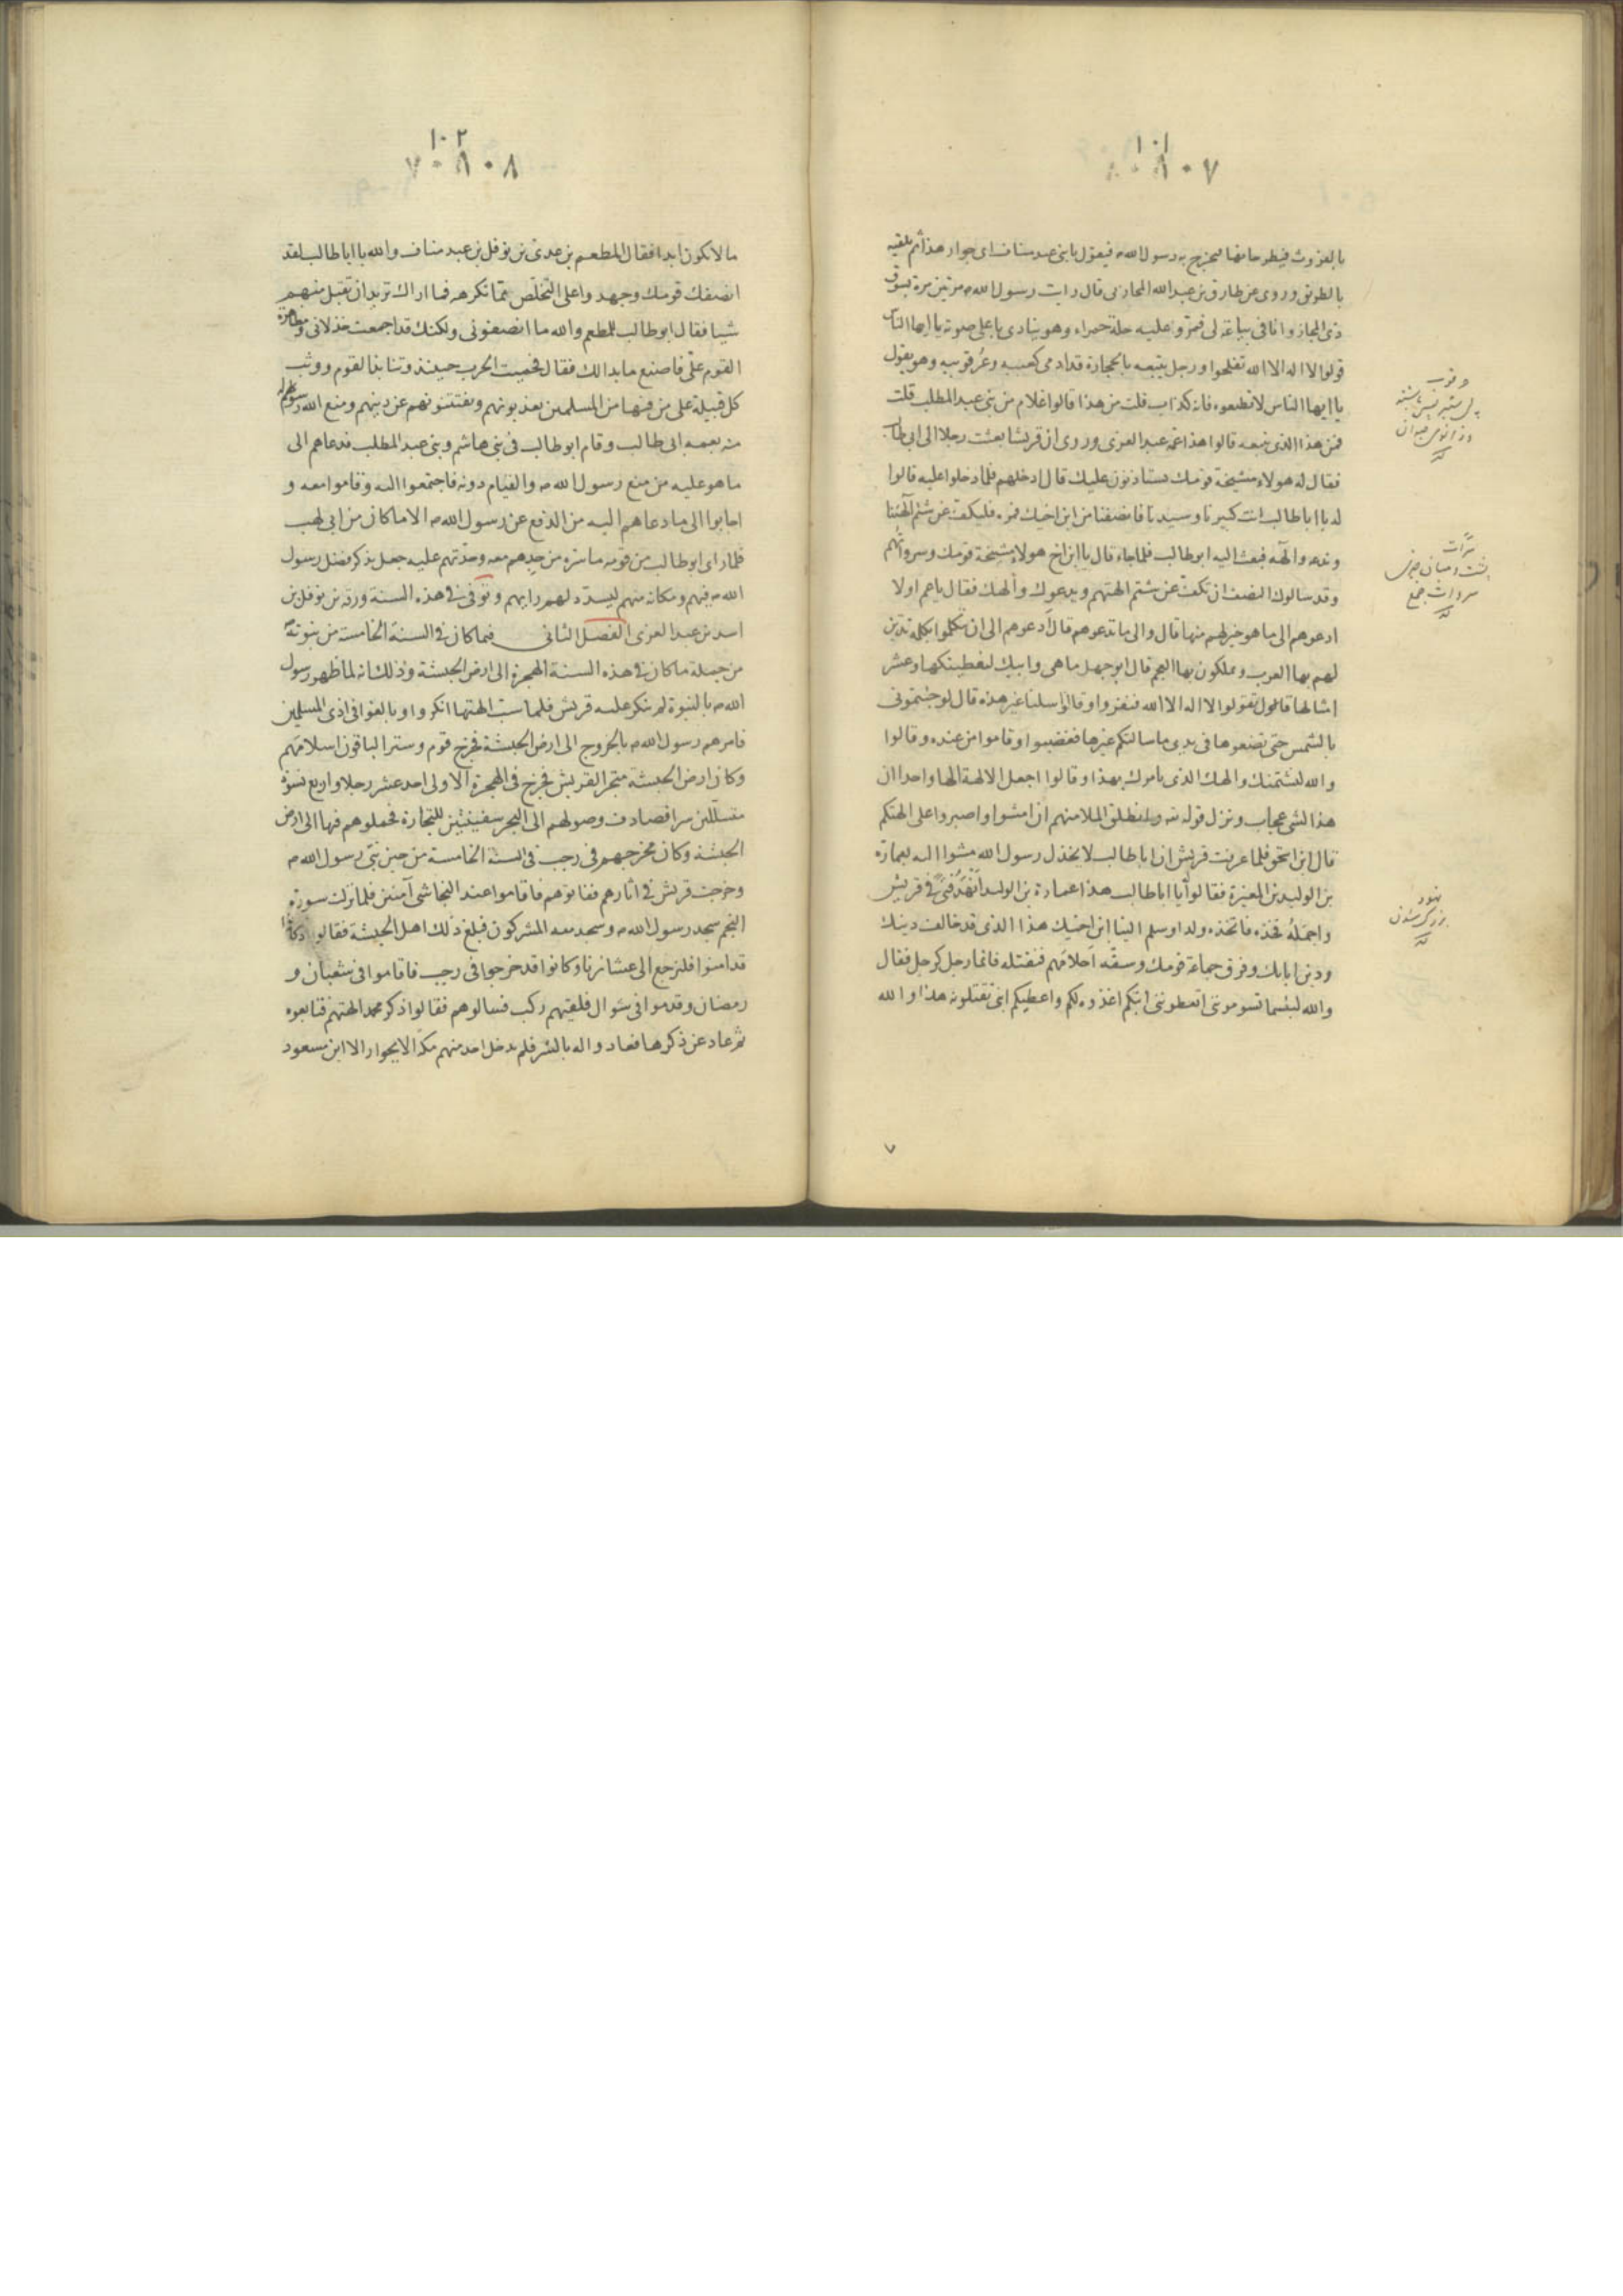 ١٠١
٨٠٧
بالفروث فيطرحانها فيخرج به رسول الله ص فيقول يا بنى عبد مناف اى جوار هذا ثم يلقيه
بالطريق وروى عن طارق بن عبد الله المحاربى قال رايت رسول الله ص مرتين مرة بسوق
ذى المجاز وانا فى بياعة لى فمر وعليه حلة حمراء وهو ينادى باعلى صوته يا ايها الناس
قولوا لا اله الا الله تفلحوا ورجل يتبعه بالحجارة قد ادمى كعبيه وعرقوبيه وهو يقول
يا ايها الناس لا تطيعوه فانه كذاب قلت من هذا قالوا غلام من بنى عبد المطلب قلت
فمن هذا الذى يتبعه قالوا هذا عمه عبد العزى وروى ان قريشا بعثت رجلا الى ابى طالب
فقال له هولاء مشيخة قومك يستاذنون عليك قال ادخلهم فلما دخلوا عليه قالوا
له يا ابا طالب انت كبيرنا وسيدنا فانصفنا من ابن اخيك فمره فليكف عن شتم آلهتنا
وندعه والهه فبعث اليه ابو طالب فلما جاء قال يا ابن اخ هولاء مشيخة قومك وسرواتهم
وقد سالوك النصف ان تكف عن شتم الهتهم ويدعوك والهك فقال يا عم اولا
ادعوهم الى ما هو خير لهم منها قال والى ما تدعوهم قال ادعوهم الى ان يتكلموا بكلمة تدين
لهم بها العرب ويملكون بها العجم قال ابو جهل ما هى وابيك لنعطينكها وعشر
امثالها قال تقولوا لا اله الا الله فنفروا وقالوا سلنا غير هذه قال لو جئتمونى
بالشمس حتى تضعوها فى يدى ما سالتكم غيرها فغضبوا وقاموا من عنده وقالوا
والله لنشتمنك والهك الذى يامرك بهذا وقالوا اجعل الالهة الها واحدا ان
هذا لشى عجاب ونزل قوله تعه وانطلق الملا منهم ان امشوا واصبروا على الهتكم
قال ابن اسحق فلما عرفت قريش ان ابا طالب لا يخذل رسول الله مشوا اليه بعمارة
بن الوليد بن المغيرة فقالوا يا ابا طالب هذا عمارة بن الوليد انهد فتى فى قريش
واجمله فخذه فاتخذه ولدا وسلم الينا ابن اخيك هذا الذى قد خالف دينك
ودين ابايك وفرق جماعة قومك وسفه احلامهم فنقتله فانما رجل كرجل فقال
والله لبئسما تسوموننى اتعطوننى ابنكم اغذوه لكم واعطيكم ابنى تقتلونه هذا والله
سروات جمع
نهود
بزرگ شدن
٧
١٠٢
٨٠٨
ما لا يكون ابدا فقال المطعم بن عدى بن نوفل بن عبد مناف والله يا ابا طالب لقد
انصفك قومك وجهدوا على التخلص مما تكرهه فما اراك تريد ان تقبل منهم
شيا فقال ابو طالب للمطعم والله ما انصفونى ولكنك قد اجمعت خذلانى ومظاهرة
القوم على فاصنع ما بدا لك فقال فحميت الحرب حينئذ وتنابذ القوم ووثب
كل قبيلة على من فيها من المسلمين يعذبونهم ويفتنونهم عن دينهم ومنع الله رسوله
منه بعمه ابى طالب وقام ابو طالب فى بنى هاشم وبنى عبد المطلب فدعاهم الى
ما هو عليه من منع رسول الله ص والقيام دونه فاجتمعوا اليه وقاموا معه و
اجابوا الى ما دعاهم اليه من الدفع عن رسول الله ص الا ما كان من ابى لهب
فلما راى ابو طالب من قومه ما سره من جدهم معه وحدتهم عليه جعل يذكر فضل رسول
الله ص فيهم ومكانه منهم ليسدد لهم رايهم وتوفى فى هذه السنة ورقة بن نوفل بن
اسد بن عبد العزى الفصل الثانى فيما كان فى السنة الخامسة من نبوته
من جملة ما كان فى هذه السنة الهجرة الى ارض الحبشة وذلك انه لما ظهر رسول
الله ص بالنبوة لم ينكر عليه قريش فلما سب الهتها انكروا وبالغوا فى اذى المسلمين
فامرهم رسول الله ص بالخروج الى ارض الحبشة فخرج قوم وستر الباقون اسلامهم
وكان ارض الحبشة متجرا لقريش فخرج فى الهجرة الاولى احد عشر رجلا واربع نسوة
متسللين سرا فصادف وصولهم الى البحر سفينتين للتجارة فحملوهم فيها الى ارض
الحبشة وكان مخرجهم فى رجب فى السنة الخامسة من حين نبى رسول الله ص
وخرجت قريش فى اثارهم ففاتوهم فاقاموا عند النجاشى آمنين فلما نزلت سورة
النجم سجد رسول الله ص وسجد معه المشركون فبلغ ذلك اهل الحبشة فقالوا
قد امنوا فلنرجع الى عشايرنا وكانوا قد خرجوا فى رجب فاقاموا فى شعبان و
رمضان وقدموا فى شوال فلقيهم ركب فسالوهم فقالوا ذكر محمد الهتهم فتابعوه
ثم عاد عن ذكرها فعادوا له بالشر فلم يدخل احد منهم مكة الا بجوار الا ابن مسعود